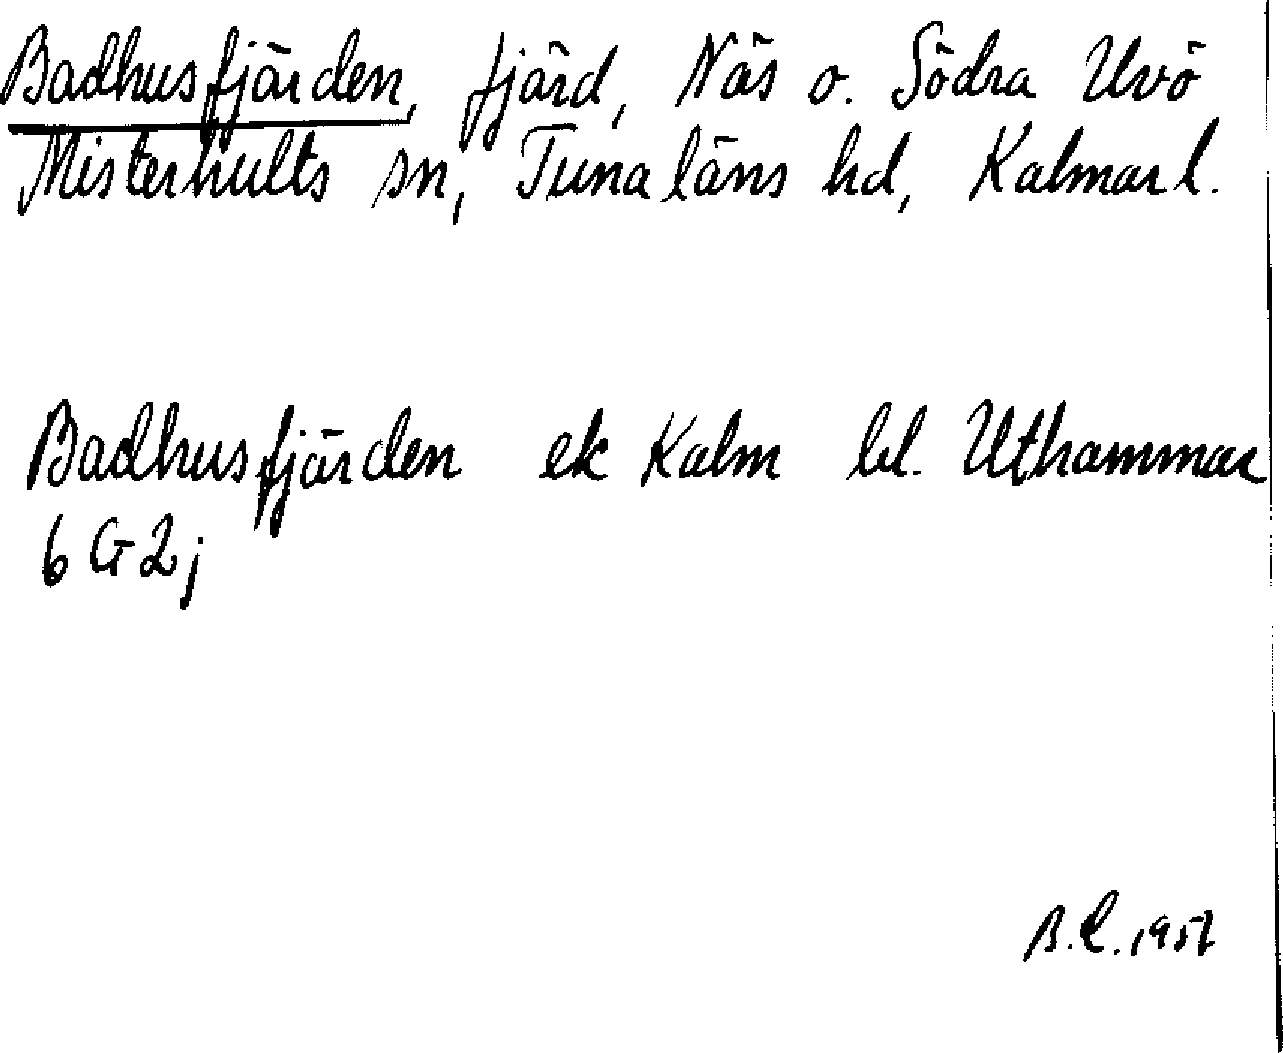 Badhusfjärden, fjärd, Näs o. Södra Uvö
Misterhults sn, Tunaläns hd, Kalmar l.
Badhusfjärden ek Kalm bl. Uthammar
6 G 2 j
B.L. 1957